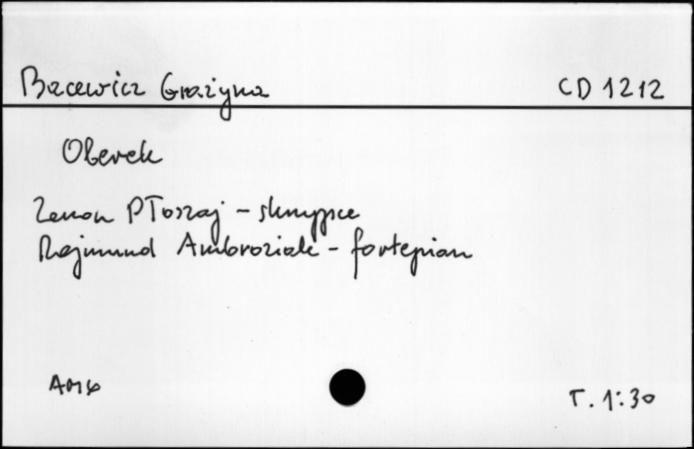 Bacewicz Grażyna CD 1212
Oberek
Zenon Płoszaj - skrzypce
Rajmund Ambroziak - fortepian
T. 1:30